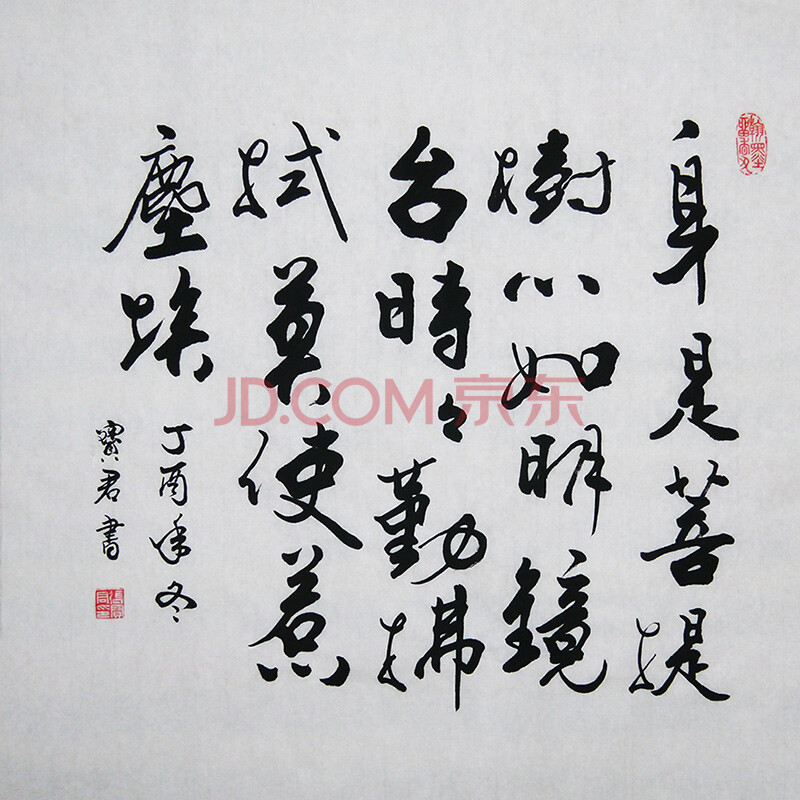 身是菩提
樹心如明鏡
台時々勤拂
拭莫使惹
塵埃
丁酉年冬
寶君書
JD.COM 京东